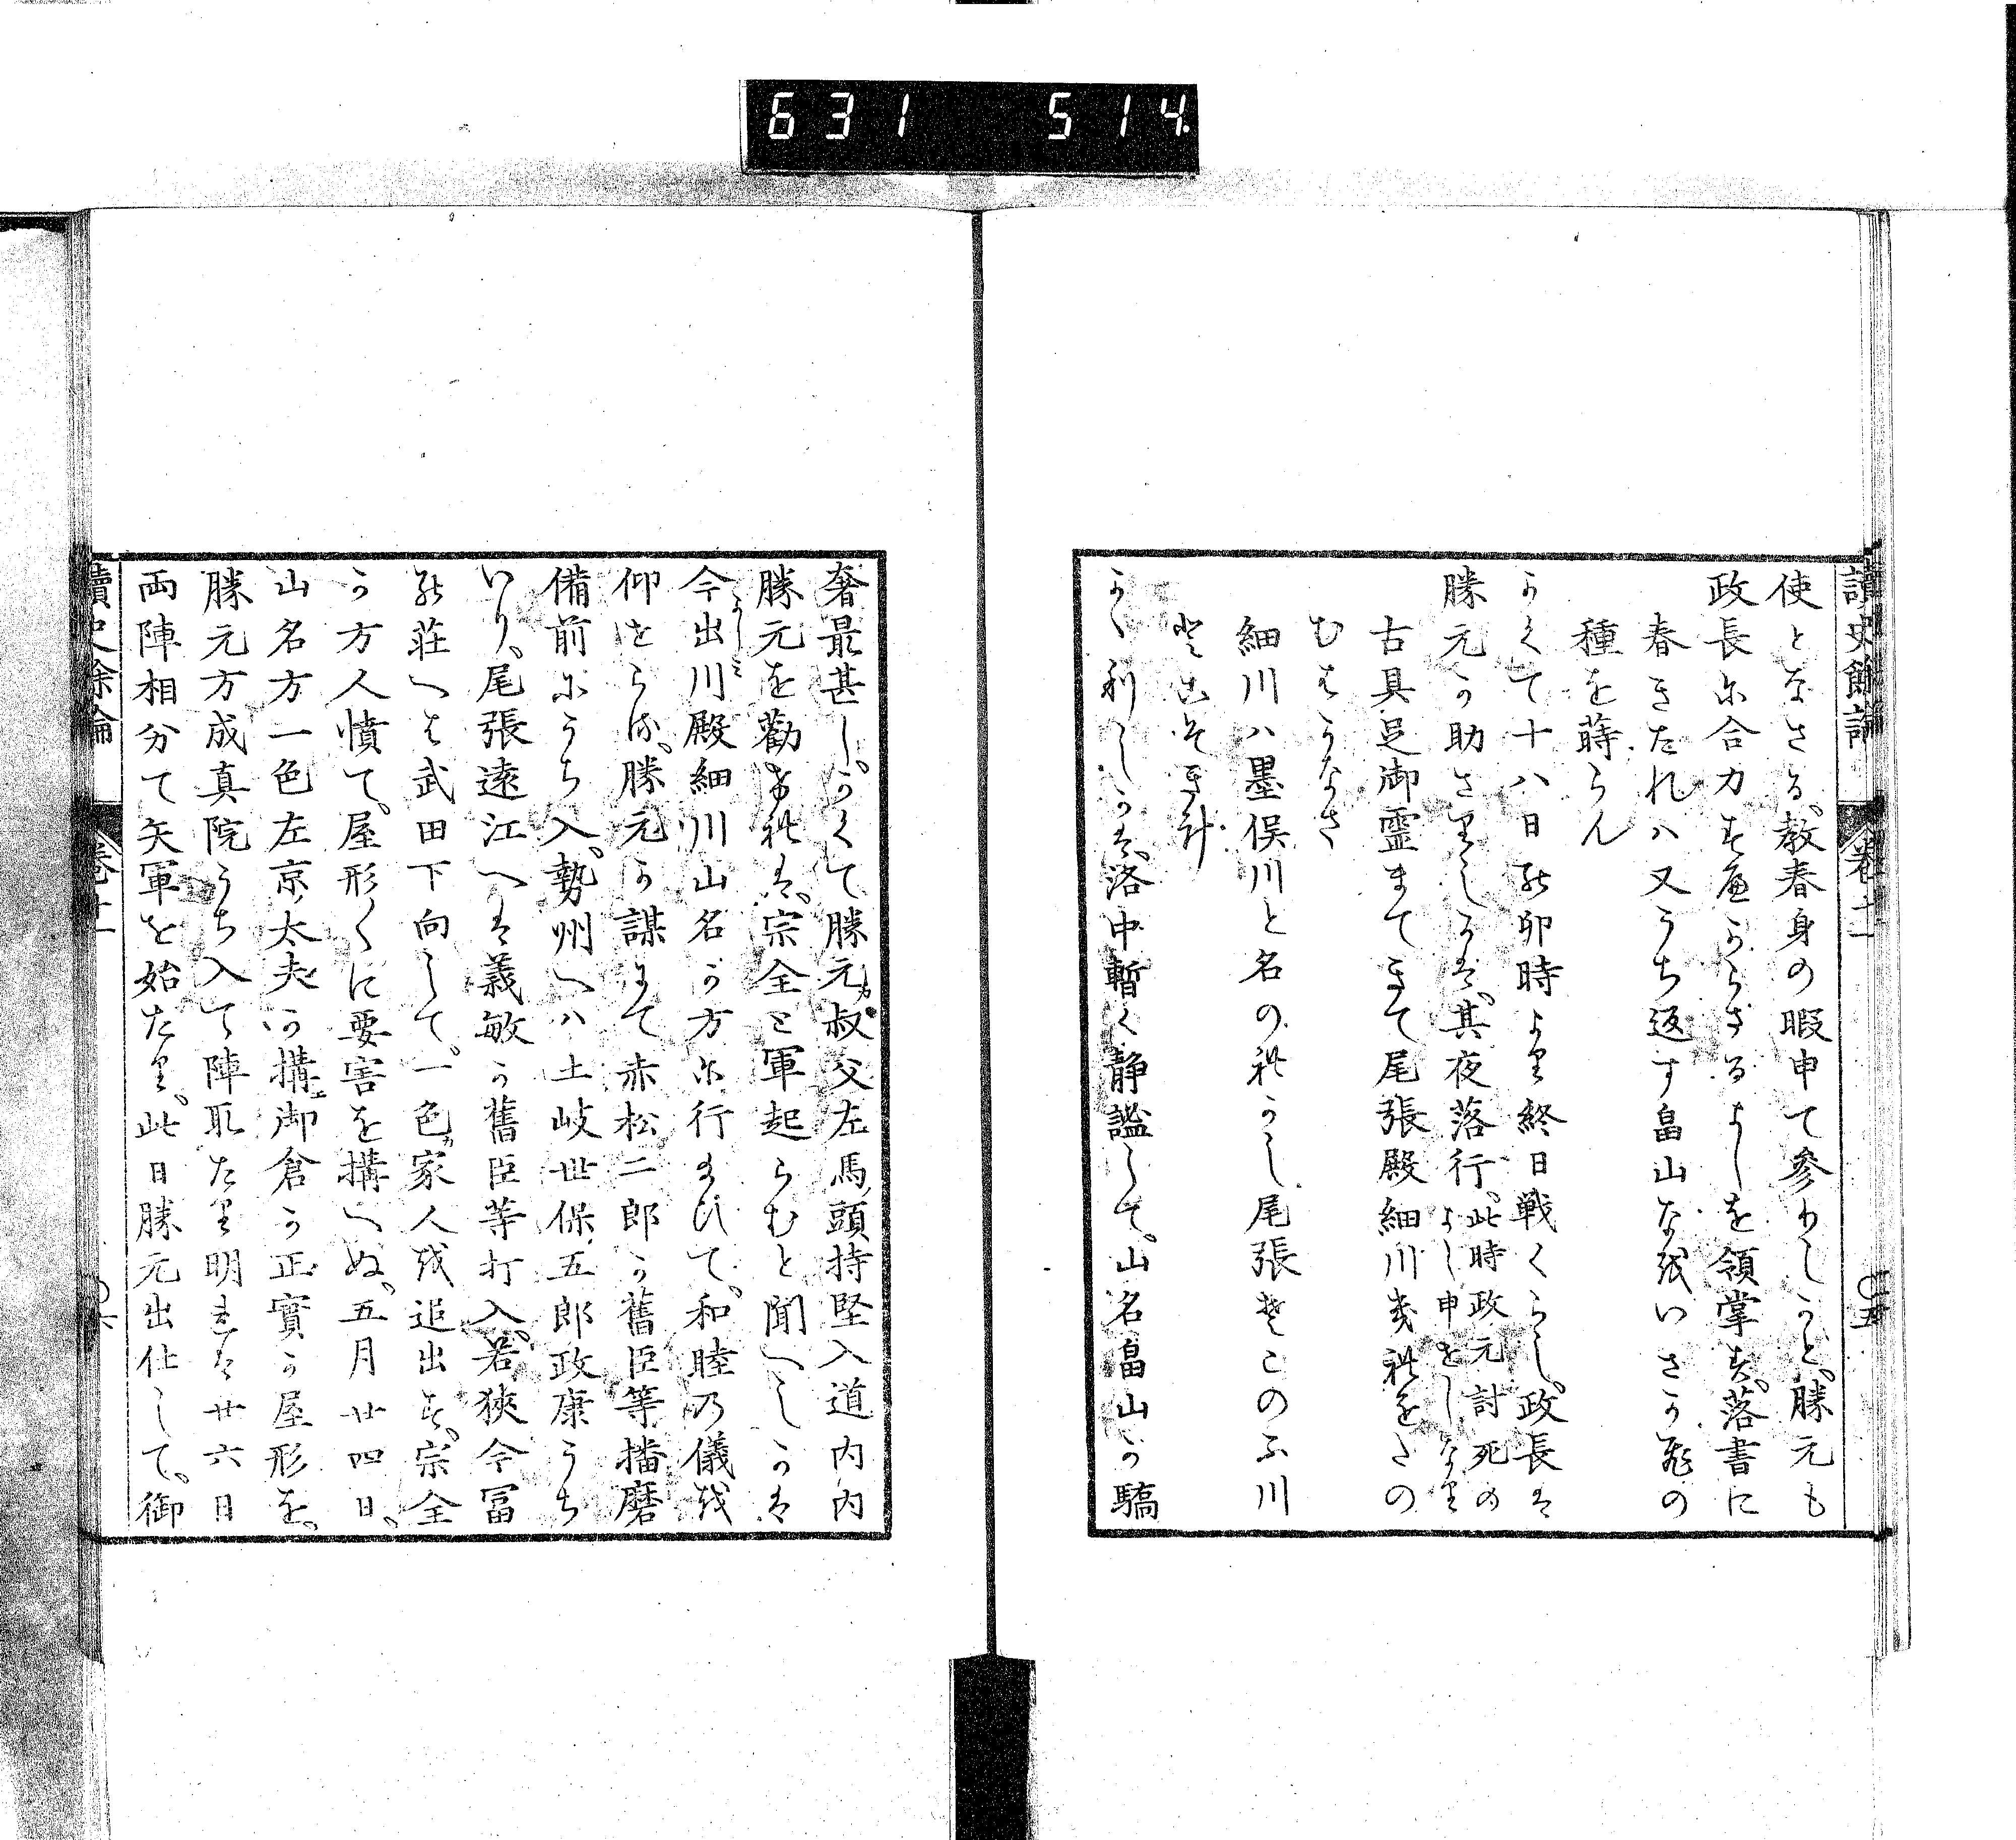 631 514
讀史餘論 卷十一 〇五
使となさる、教春身の暇申て参りしかと、勝元も
政長に合力すへからさるよしを領掌す、落書に
春きたれハ又うち返す畠山な越いさか飛の
種を蒔らん
かくて十八日能卯時より終日戦くらし、政長は
勝元か助さりしかは、其夜落行、此時政元討死の
よし申せしなり
古具足御霊まてきて尾張殿細川き礼をの
むはうなさ
細川ハ墨俣川と名の礼かし尾張そこのふ川
登こそき計
かく利しかは、洛中暫く静謐して、山名畠山か驕
奢最甚し、かくて勝元カ叔父左馬頭持堅入道内内
勝元を勸め礼は、宗全と軍起らむと聞へしかは
今出川殿細川山名か方に行よしみまひて、和睦乃儀越
仰せらる、勝元か謀にて赤松二郎か舊臣等播磨
備前にうち入、勢州へハ土岐世保五郎政康うち
いり、尾張遠江へは義敏か舊臣等打入、若狹今冨
能莊へは武田下向して、一色カ家人越追出す、宗全
か方人憤て、屋形くに要害を構へぬ、五月廿四日、
山名方一色左京太夫か構御倉か正實か屋形を、
勝元方成真院うち入て陣取たり明れは廿六日
両陣相分て矢軍を始たり、此日勝元出仕して、御
讀史餘論 卷十一 〇六